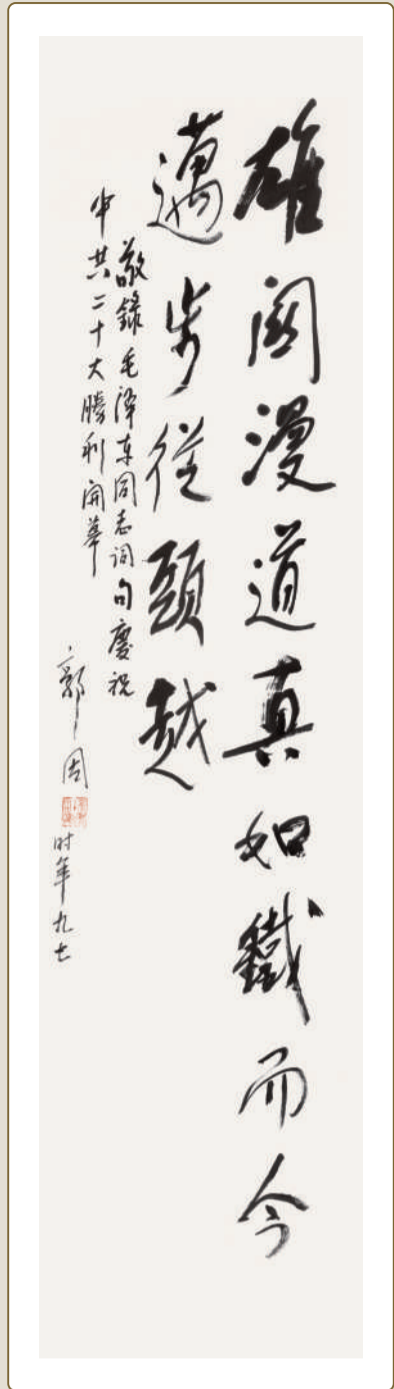 雄関漫道真如鐵而今
邁步從頭越
敬錄毛泽东同志词句慶祝
中共二十大勝利開幕
郭周
时年九七